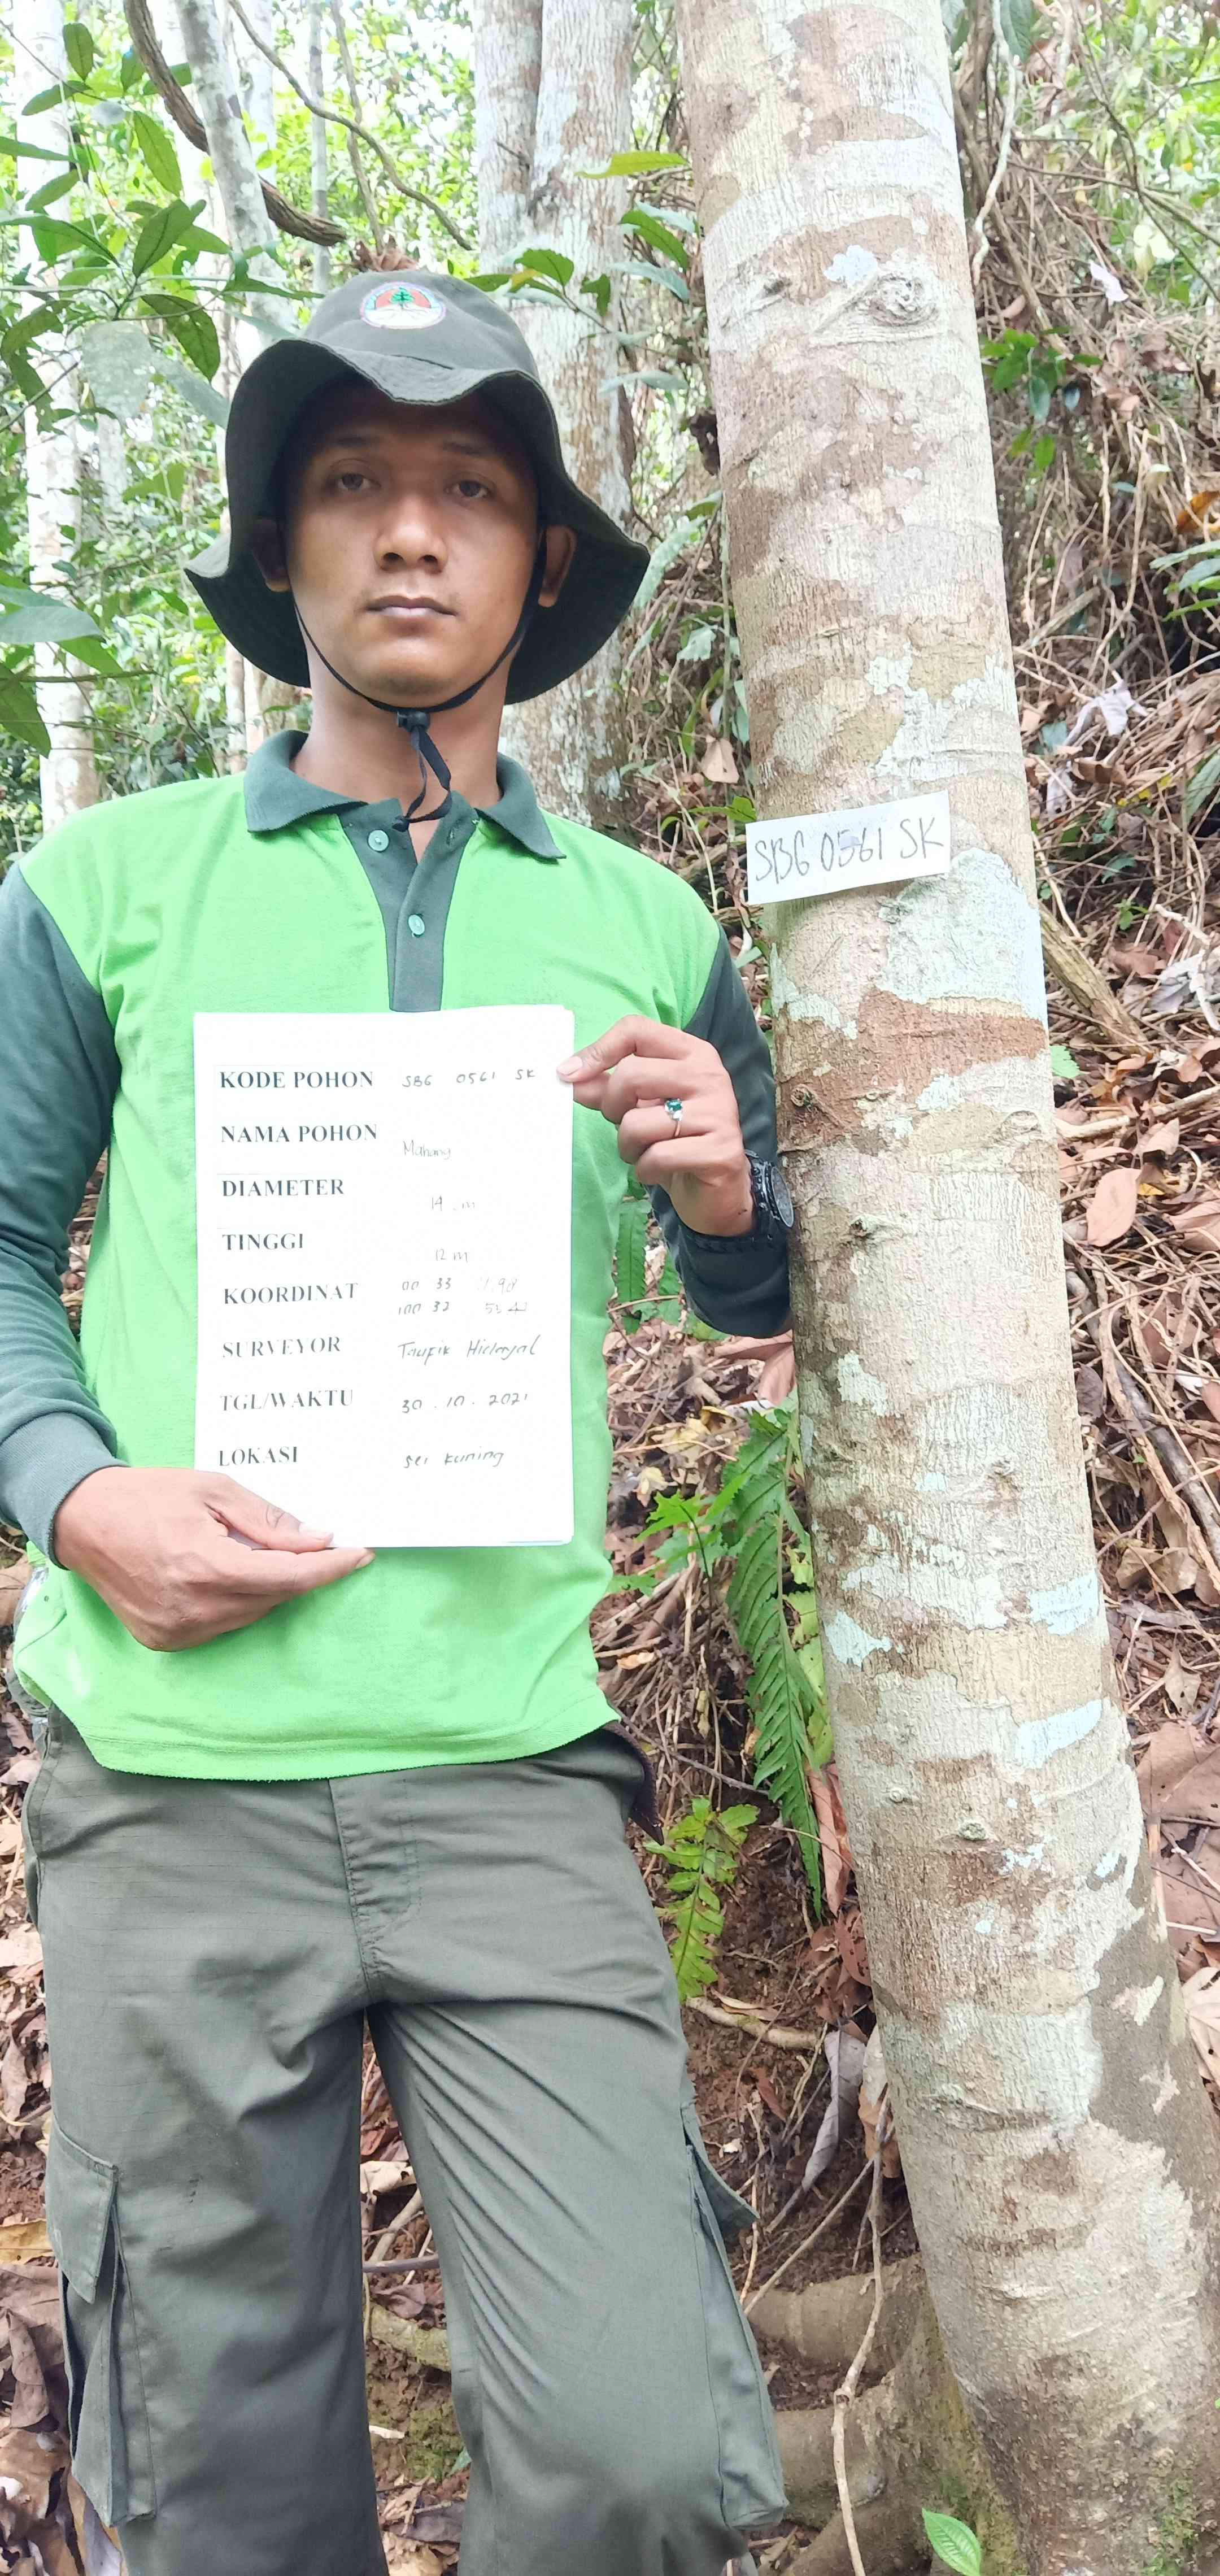 SBG 0561 SK
KODE POHON SBG 0561 SK
NAMA POHON Mahang
DIAMETER 14 cm
TINGGI 12 m
KOORDINAT 00 33
100 32
SURVEYOR Taupik Hidayat
TGL/WAKTU 30.10.2021
LOKASI sei kuning